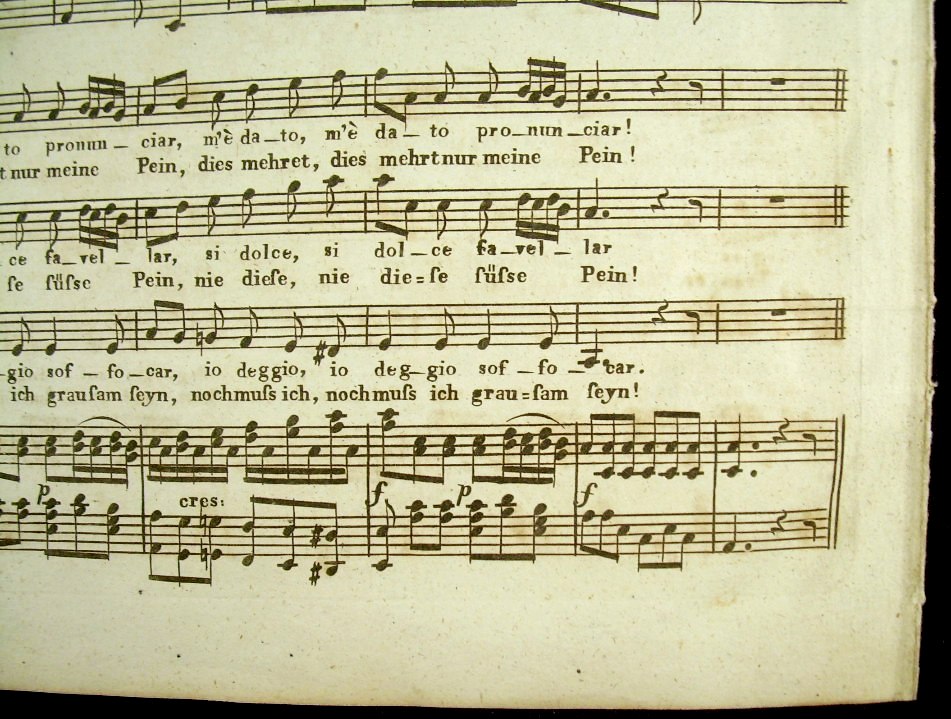 to pronun – ciar, m'è da – to, m'è da – to pro – nun – ciar!
t nur meine Pein, dies mehret, dies mehrt nur meine Pein!
ce fa – vel – lar, si dolce, si dol – ce fa – vel – lar
ſe ſüſse Pein, nie dieſe, nie die = ſe ſüſse Pein!
-gio sof – fo – car, io deggio, io deg – gio sof – fo – car.
ich grauſam ſeyn, noch muſs ich, noch muſs ich grau = ſam ſeyn!
p cres: f p f